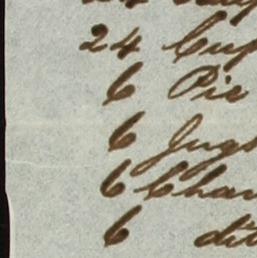 24 Cup
6 Pie
6 Jugs
6 Cham
6 dit